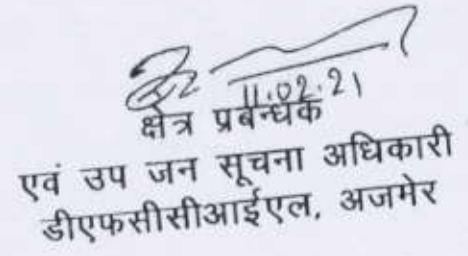 11.02.21
क्षेत्र प्रबन्धक
एवं उप जन सूचना अधिकारी
डीएफसीसीआईएल, अजमेर